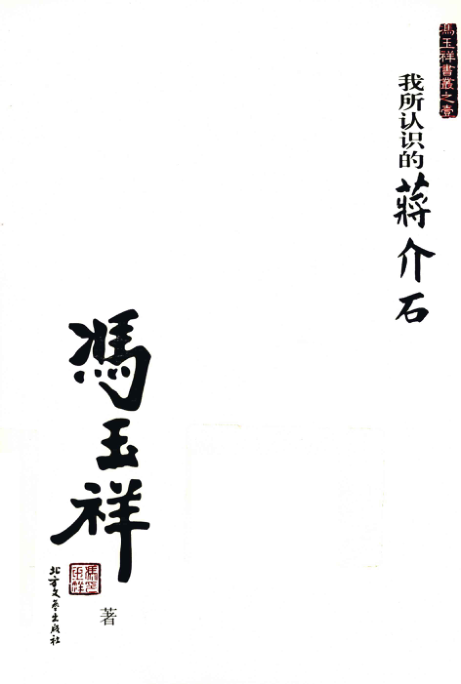 馮玉祥書叢之壹
我所认识的蔣介石
馮玉祥
馮玉祥
著
北方文艺出版社